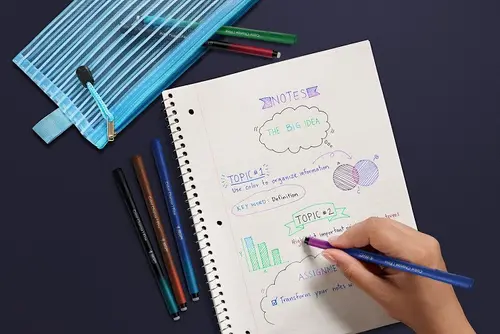 NOTES
THE BIG IDEA
TOPIC #1
Use color to organize information
KEY WORD: Definition
TOPIC #2
Highlight important
ASSIGNME
Transform your notes